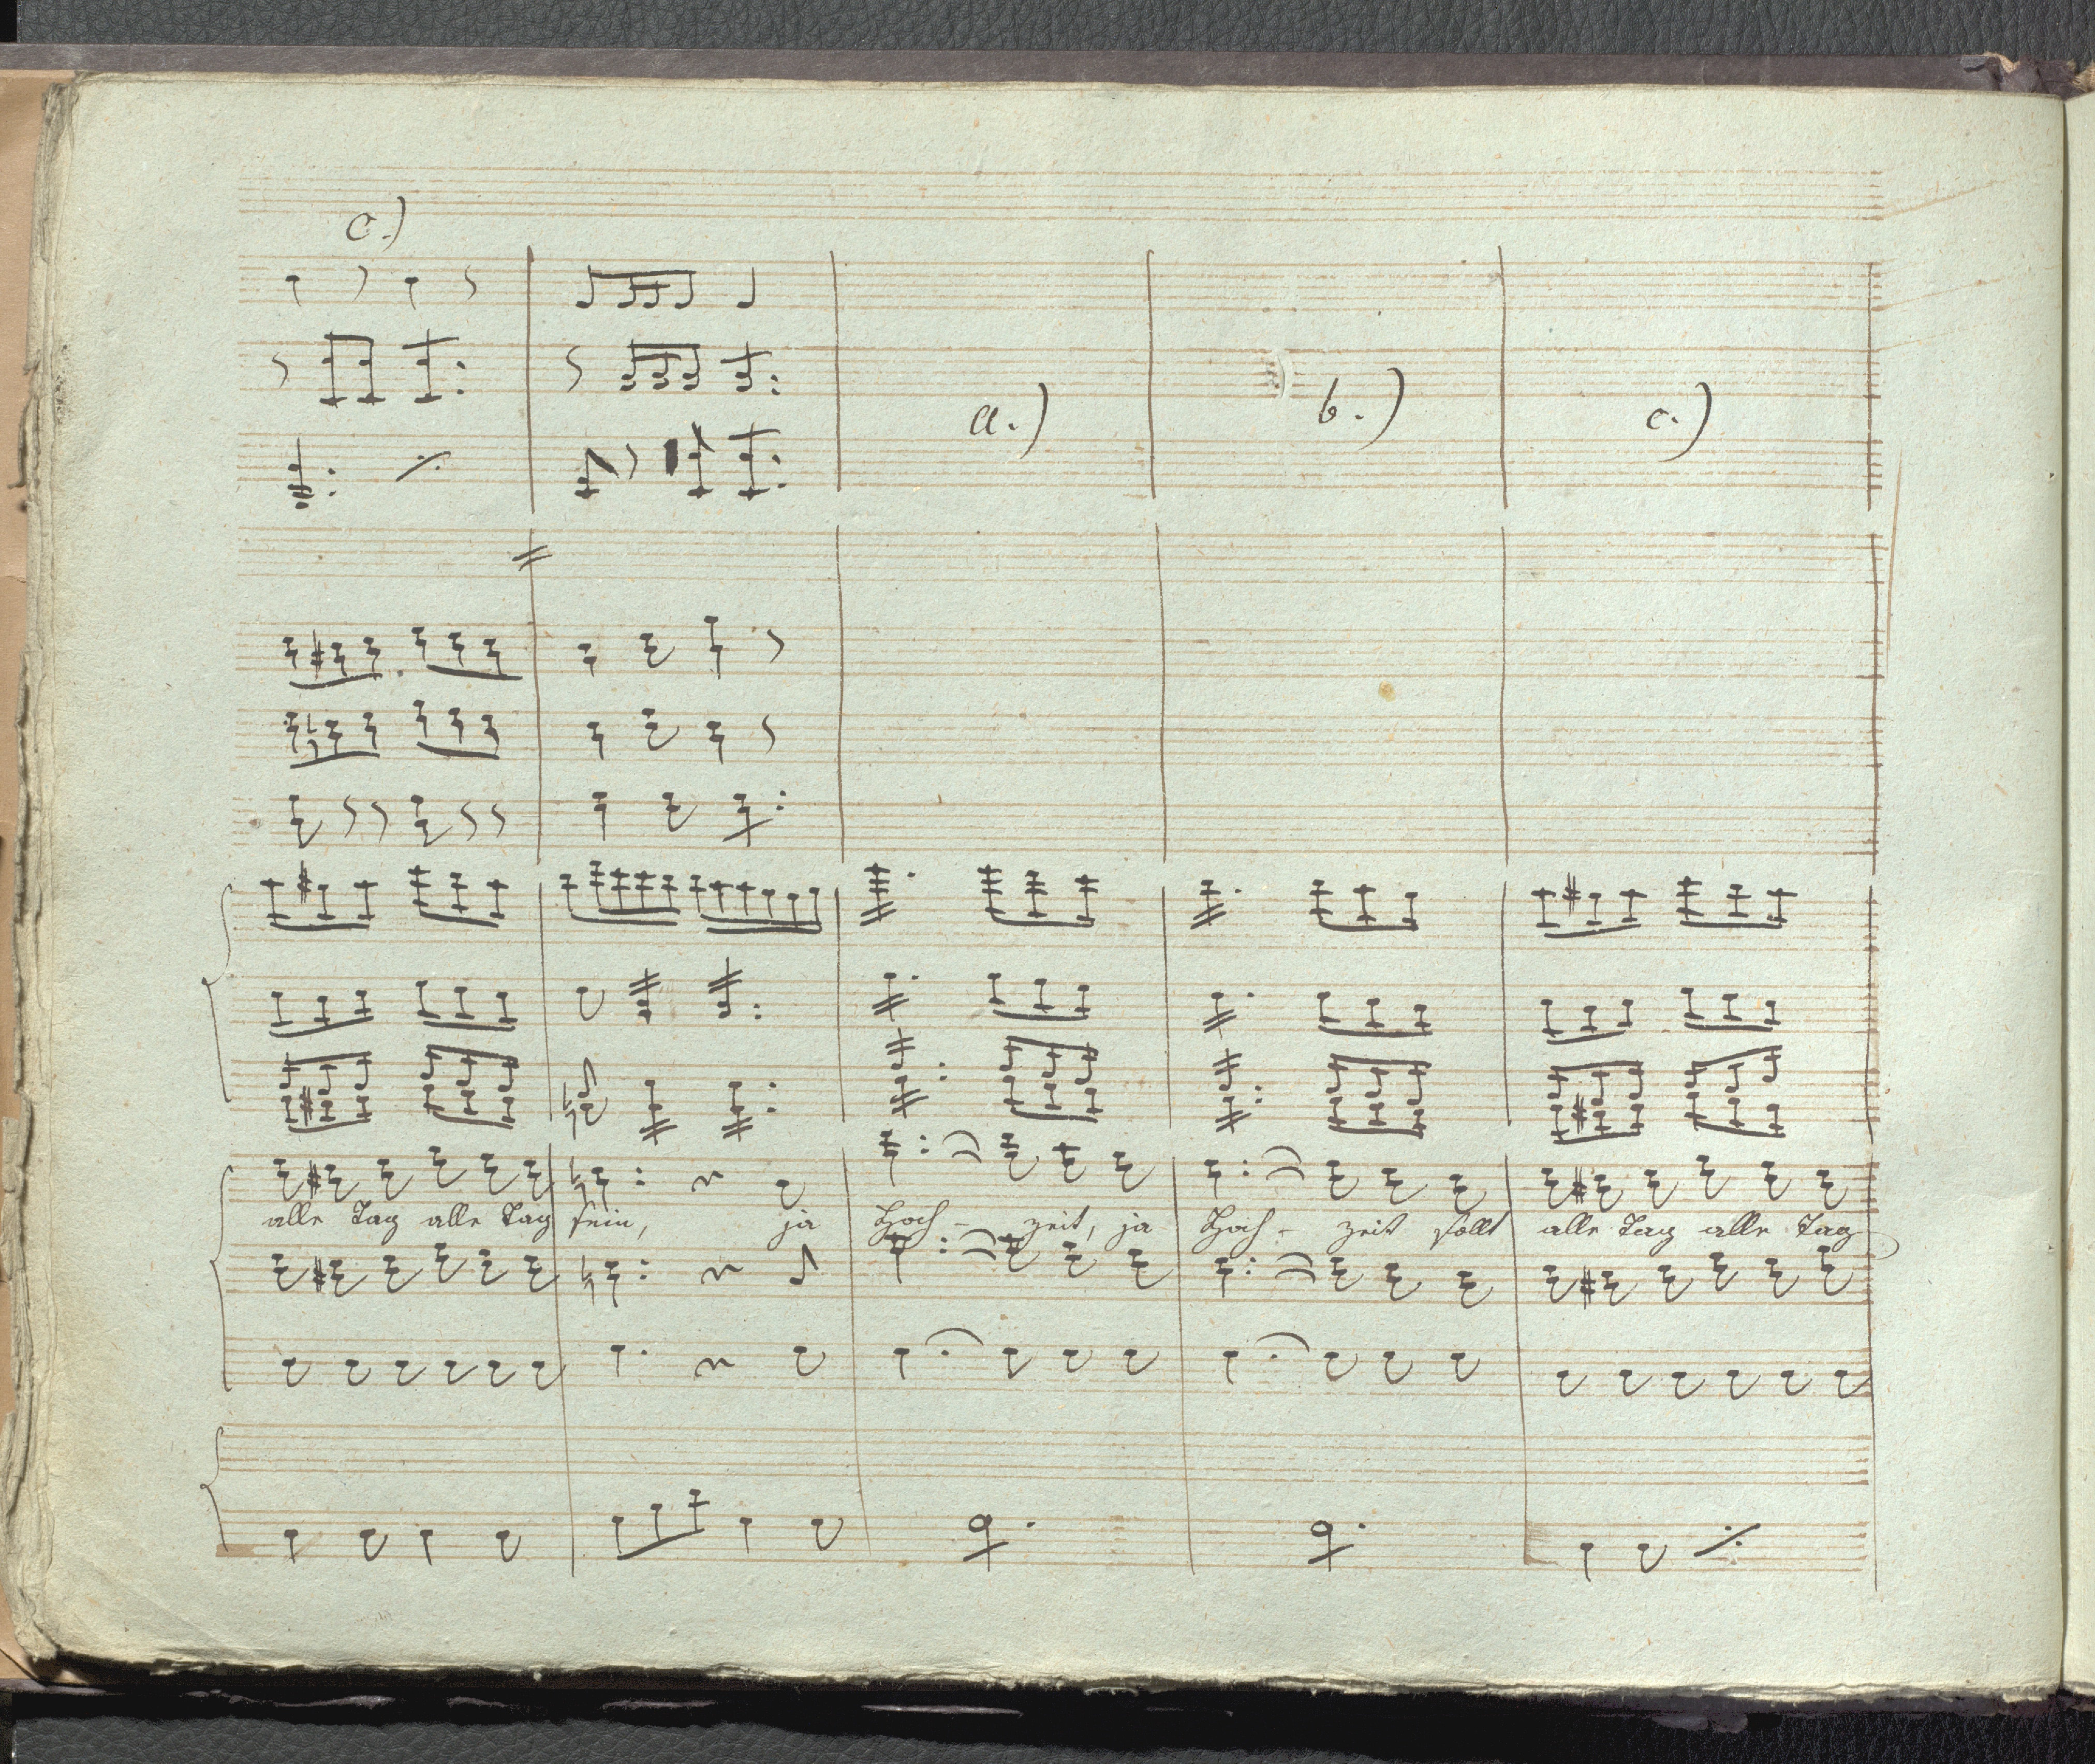 c.)
a.) b.) c.)
alle Tag alle Tag sein, ja Hoch - zeit, ja Hoch - zeit sollt alle Tag alle Tag